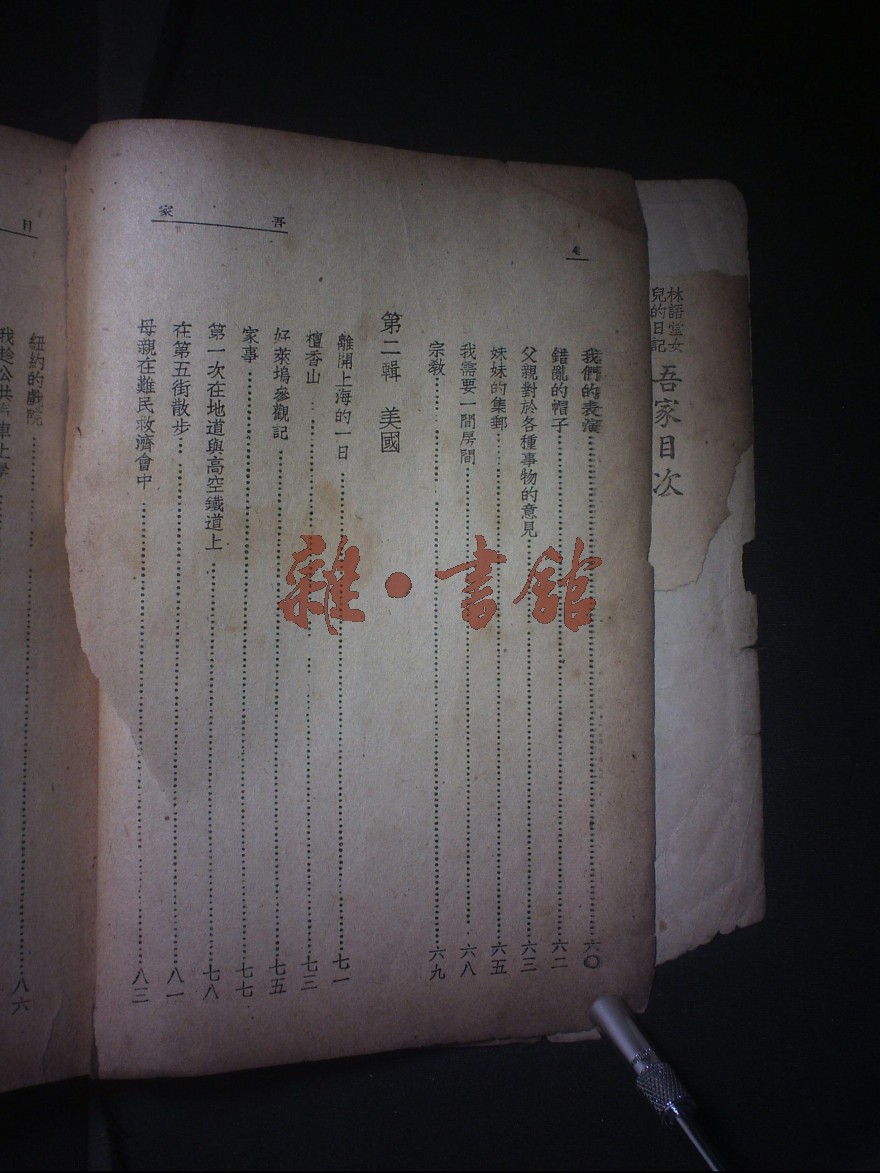 林語堂女
兒的日記
吾家目次
4
吾家
我們的表演……六〇
錯亂的帽子……六二
父親對於各種事物的意見……六三
妹妹的集郵……六五
我需要一間房間……六八
宗教……六九
第二輯 美國
離開上海的一日……七一
檀香山……七三
好萊塢參觀記……七五
家事……七七
第一次在地道與高空鐵道上……七八
在第五街散步……八一
母親在難民救濟會中……八三
目
紐約的戲院……八六
我趁公共汽車上學
雜·書館